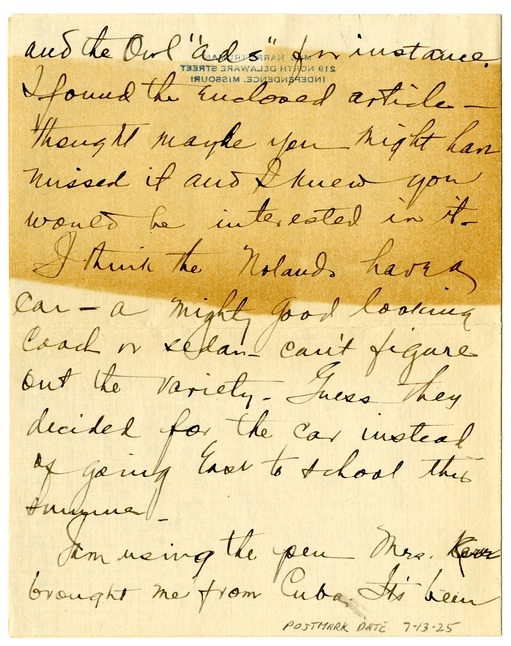 and the Owl "ads" for instance.
MRS. HARRY TRUMAN
219 NORTH DELAWARE STREET
INDEPENDENCE, MISSOURI
I found the enclosed article –
thought maybe you might have
missed it and I knew you
would be interested in it –
I think the Nolands have a
car – a mighty good looking
coach or sedan – can't figure
out the variety – Guess they
decided for the car instead
of going East to school this
summer –
I am using the pen Mrs. Kerr
brought me from Cuba. It's been
POSTMARK DATE 7-13-25